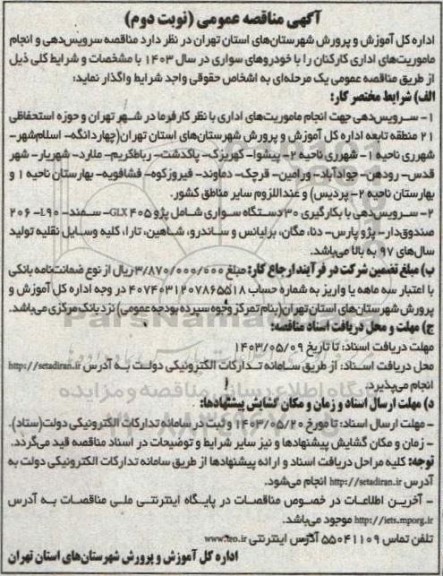 آگهی مناقصه عمومی (نوبت دوم)
اداره کل آموزش و پرورش شهرستان‌های استان تهران در نظر دارد مناقصه سرویس‌دهی و انجام
ماموریت‌های اداری کارکنان را با خودروهای سواری در سال ۱۴۰۳ با مشخصات و شرایط کلی ذیل
از طریق مناقصه عمومی یک مرحله‌ای به اشخاص حقوقی واجد شرایط واگذار نماید:
الف) شرایط مختصر کار:
۱- سرویس‌دهی جهت انجام ماموریت‌های اداری با نظر کارفرما در شهر تهران و حوزه استحفاظی
۲۱ منطقه تابعه اداره کل آموزش و پرورش شهرستان‌های استان تهران(چهاردانگه- اسلام‌شهر-
شهرری ناحیه ۱- شهرری ناحیه ۲- پیشوا- کهریزک- پاکدشت- رباط‌کریم- ملارد- شهریار- شهر
قدس- رودهن- جوادآباد- ورامین- قرچک- دماوند- فیروزکوه- فشافویه- بهارستان ناحیه ۱ و
بهارستان ناحیه ۲- پردیس) و عنداللزوم سایر مناطق کشور.
۲- سرویس‌دهی با بکارگیری ۳۰دستگاه سواری شامل پژو ۴۰۵ GLX- سمند- L۹۰- ۲۰۶
صندوق‌دار- پژو پارس- دنا، مگان، برلیانس و ساندرو، شاهین، تارا، کلیه وسایل نقلیه تولید
سال‌های ۹۷ به بالا می‌باشد.
ب) مبلغ تضمین شرکت در فرآیند ارجاع کار: مبلغ ۳/۸۷۰/۰۰۰/۰۰۰ ریال از نوع ضمانت‌نامه بانکی
با اعتبار سه ماهه یا واریز به شماره حساب ۴۰۷۴۰۳۱۴۰۷۸۶۵۵۱۸ در وجه اداره کل آموزش و
پرورش شهرستان‌های استان تهران(بنام تمرکز وجوه سپرده بودجه عمومی) نزد بانک مرکزی می‌باشد.
ج) مهلت و محل دریافت اسناد مناقصه:
مهلت دریافت اسناد: تا تاریخ ۱۴۰۳/۰۵/۰۹
محل دریافت اسناد: از طریق سامانه تدارکات الکترونیکی دولت به آدرس http://setadiran.ir
انجام می‌پذیرد.
د) مهلت ارسال اسناد و زمان و مکان گشایش پیشنهادها:
- مهلت ارسال اسناد: تا مورخ ۱۴۰۳/۰۵/۲۰ و ثبت در سامانه تدارکات الکترونیکی دولت(ستاد).
- زمان و مکان گشایش پیشنهادها و نیز سایر شرایط و توضیحات در اسناد مناقصه قید می‌گردد.
توجه: کلیه مراحل دریافت اسناد و ارائه پیشنهادها از طریق سامانه تدارکات الکترونیکی دولت به
آدرس http://setadiran.ir انجام می‌شود.
- آخرین اطلاعات در خصوص مناقصات در پایگاه اینترنتی ملی مناقصات به آدرس
http://iets.mporg.ir موجود می‌باشد.
تلفن تماس ۵۵۰۴۱۱۰۹ آدرس اینترنتی www.teo.ir
اداره کل آموزش و پرورش شهرستان‌های استان تهران